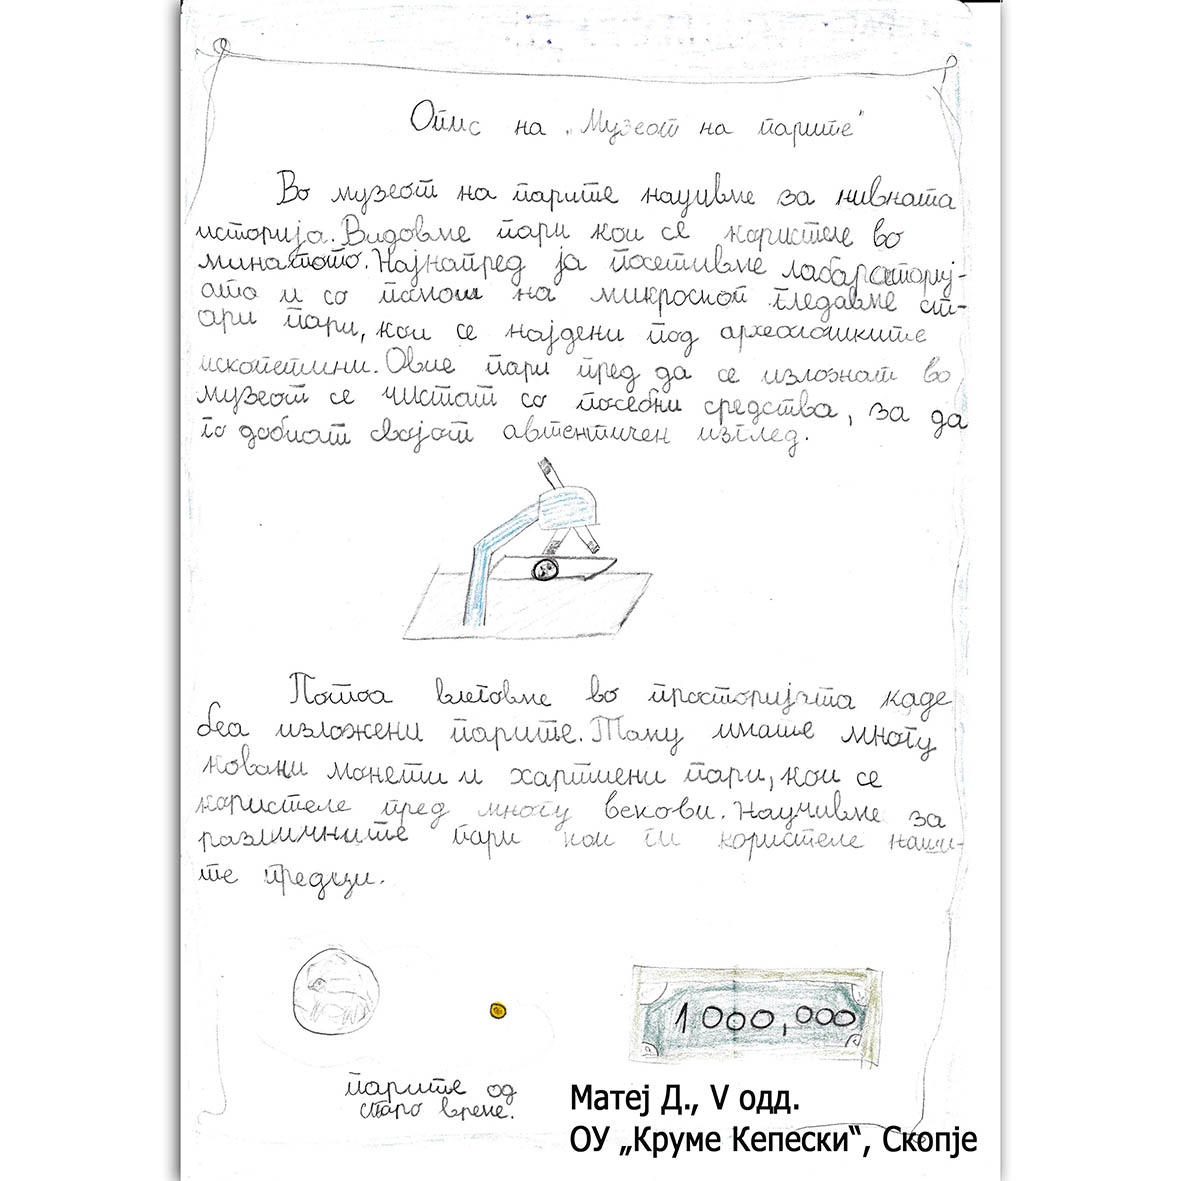 Опис на „Музеот на парите"
Во музеот на парите научивме за нивната
историја. Видовме пари кои се користеле во
минатото. Најнапред ја посетивме лабараториј-
ата и со помош на микроскоп гледавме ст-
ари пари, кои се најдени под археолошките
ископетини. Овие пари пред да се изложат во
музеот се чистат со посебни средства, за да
го добиат својот автентичен изглед.
Потоа влеговме во просторијата каде
беа изложени парите. Таму имаше многу
ковани монети и хартиени пари, кои се
користеле пред многу векови. Научивме за
различните пари кои ги користеле наши-
те предци.
1000,000
парите од
старо време.
Матеј Д., V одд.
ОУ „Круме Кепески“, Скопје